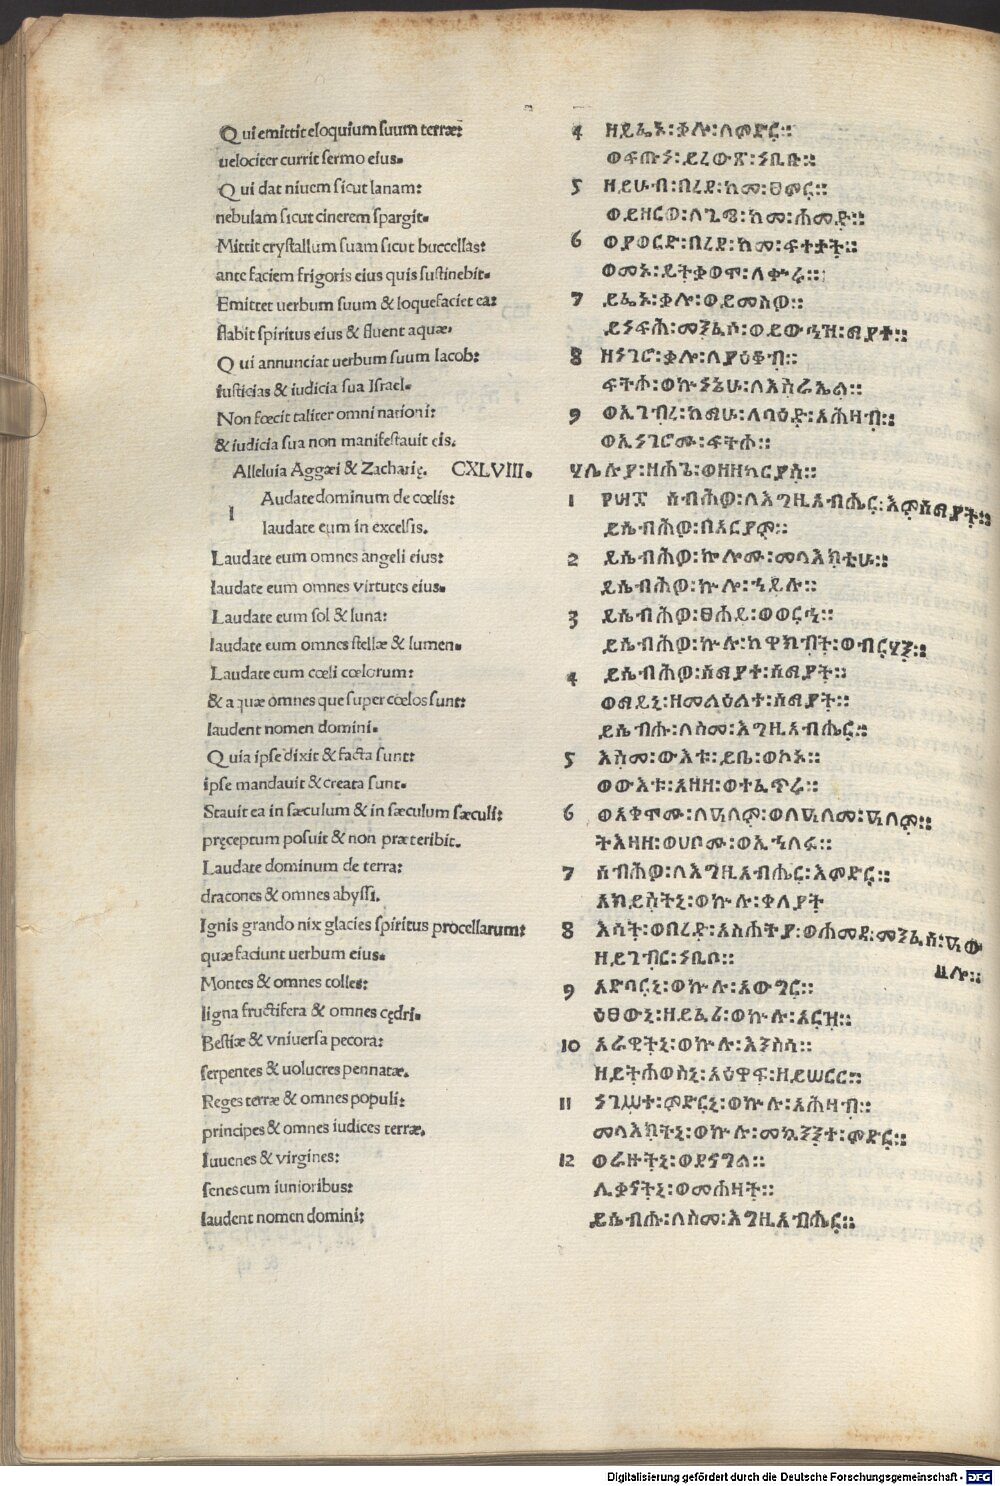 Qui emittit eloquium suum terræ:
uelociter currit sermo eius.
Qui dat niuem sicut lanam:
nebulam sicut cinerem spargit.
Mittit crystallum suam sicut buccellas:
ante faciem frigoris eius quis sustinebit.
Emittet uerbum suum & loquefaciet ea:
flabit spiritus eius & fluent aquæ.
Qui annunciat uerbum suum Iacob:
iusticias & iudicia sua Israel.
Non fœcit taliter omni nationi:
& iudicia sua non manifestauit eis.
Alleluia Aggæi & Zacharię. CXLVIII.
lAudate dominum de cœlis:
laudate eum in excelsis.
Laudate eum omnes angeli eius:
laudate eum omnes virtutes eius.
Laudate eum sol & luna:
laudate eum omnes stellæ & lumen.
Laudate eum cœli cœlorum:
& aquæ omnes que super cœlos sunt:
laudent nomen domini.
Quia ipse dixit & facta sunt:
ipse mandauit & creata sunt.
Stauit ea in sæculum & in sæculum sæculi:
pręceptum posuit & non præteribit.
Laudate dominum de terra:
dracones & omnes abyssi.
Ignis grando nix glacies spiritus procellarum:
quæ faciunt uerbum eius.
Montes & omnes colles:
ligna fructifera & omnes cędri.
Bestiæ & vniuersa pecora:
serpentes & uolucres pennatæ.
Reges terræ & omnes populi:
principes & omnes iudices terræ.
Iuuenes & virgines:
senes cum iunioribus:
laudent nomen domini:
4 ዘይፌኑ፡ቃሎ፡ለምድር።
ወፍጡነ፡ይረውጽ፡ነቢቡ።
5 ዘይሁብ፡በረደ፡ከመ፡ፀምር።
ወይዘርዎ፡ለጊሜ፡ከመ፡ሐመድ።
6 ወያወርድ፡በረደ፡ከመ፡ፍተታት።
ወመኑ፡ይትቃወሞ፡ለቍሩ።
7 ይፌኑ፡ቃሎ፡ወይመስዎ።
ይነፍሕ፡መንፈሶ፡ወይውኂዝ፡ማያተ።
8 ዘነገሮ፡ቃሎ፡ለያዕቆብ።
ፍትሖ፡ወኵነኔሁ፡ለእስራኤል።
9 ወኢገብረ፡ከማሁ፡ለባዕድ፡አሕዛብ።
ወኢነገሮሙ፡ፍትሖ።
ሃሌሉያ፡ዘሐጌ፡ወዘዘካርያስ።
1 ፻፵፰ ሰብሕዎ፡ለእግዚአብሔር፡እምሰማያት።
ይሴብሕዎ፡በአርያም።
2 ይሴብሕዎ፡ኵሎሙ፡መላእክቲሁ።
ይሴብሕዎ፡ኵሎ፡ኀይሉ።
3 ይሴብሕዎ፡ፀሐይ፡ወወርኅ።
ይሴብሕዎ፡ኵሉ፡ከዋክብት፡ወብርሃን።
4 ይሴብሕዎ፡ሰማያተ፡ሰማያት።
ወማይኒ፡ዘመልዕልተ፡ሰማያት።
ይሴብሑ፡ለስመ፡እግዚአብሔር።
5 እስመ፡ውእቱ፡ይቤ፡ወኮኑ።
ወውእቱ፡አዘዘ፡ወተፈጥሩ።
6 ወአቀሞሙ፡ለዓለም፡ወለዓለመ፡ዓለም።
ትእዛዘ፡ወሀቦሙ፡ወኢኀለፉ።
7 ሰብሕዎ፡ለእግዚአብሔር፡እምድር።
አክይስትኒ፡ወኵሉ፡ቀላያት
8 እሳት፡ወበረድ፡አስሐትያ፡ወሐመዳ፡መንፈሰ፡ዓውሎ።
ዘይገብር፡ነቢቦ።
9 አድባርኒ፡ወኵሉ፡አውግር።
ዕፀውኒ፡ዘይፈሪ፡ወኵሉ፡አርዝ።
10 አራዊትኒ፡ወኵሉ፡እንስሳ።
ዘይትሐወስኒ፡አዕዋፍ፡ዘይሠርር።
11 ነገሥተ፡ምድርኒ፡ወኵሉ፡አሕዛብ።
መላእክትኒ፡ወኵሉ፡መኳንንተ፡ምድር።
12 ወራዙትኒ፡ወደናግል።
ሊቃናትኒ፡ወመሐዛት።
ይሴብሑ፡ለስመ፡እግዚአብሔር።
Digitalisierung gefördert durch die Deutsche Forschungsgemeinschaft - DFG